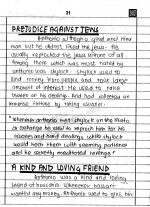 21
PREJUDICE AGAINST JEWS
Antonio although a good and kind
man but he didn't liked the jews. He
usually reproched the jews. Above all of
among them which was most hated by
Antonio was shylock. Shylock used to
lend money to people and took large
amount of interest. He used to take
usuries on his dealing. And had collected an
immense fortune by taking usuries.
"Whenever Antonio met shylock on the Rialto
or exchange he used to reproch him for his
usuries and hard dealing, which shylock
would bear them with seeming patience
and he secretly meditated revenge."
A KIND AND LOVING FRIEND
Antonio was a kind and loving
friend of bassanio. Whenever bassanio
wanted any money, Antonio used to give him